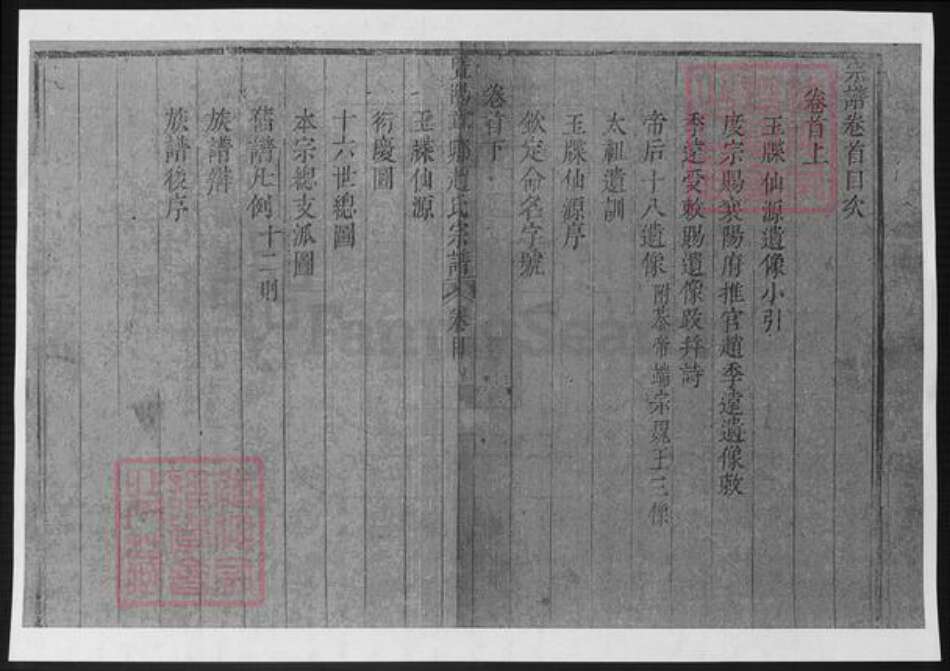 宗譜卷首目次
卷首上
玉牒仙源遺像小引
度宗賜襄陽府推官趙季逵遺像敕
季逵受敕賜遺像跋幷詩
帝后十八遺像 附恭帝端宗魏王三像
太祖遺訓
玉牒仙源序
欽定命名字號
卷首下
趙氏宗譜 卷首
玉牒仙源
衍慶圖
十六世總圖
本宗總支派圖
舊譜凡例十二則
族譜辯
族譜後序